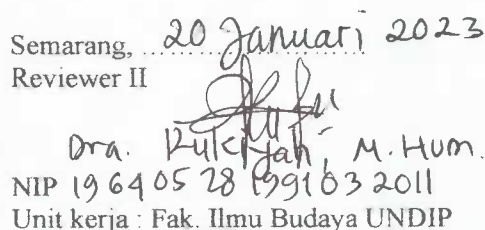 Semarang, 20 Januari 2023
Reviewer II
Dra. Rukiyah, M.Hum.
NIP 196405281991032011
Unit kerja : Fak. Ilmu Budaya UNDIP